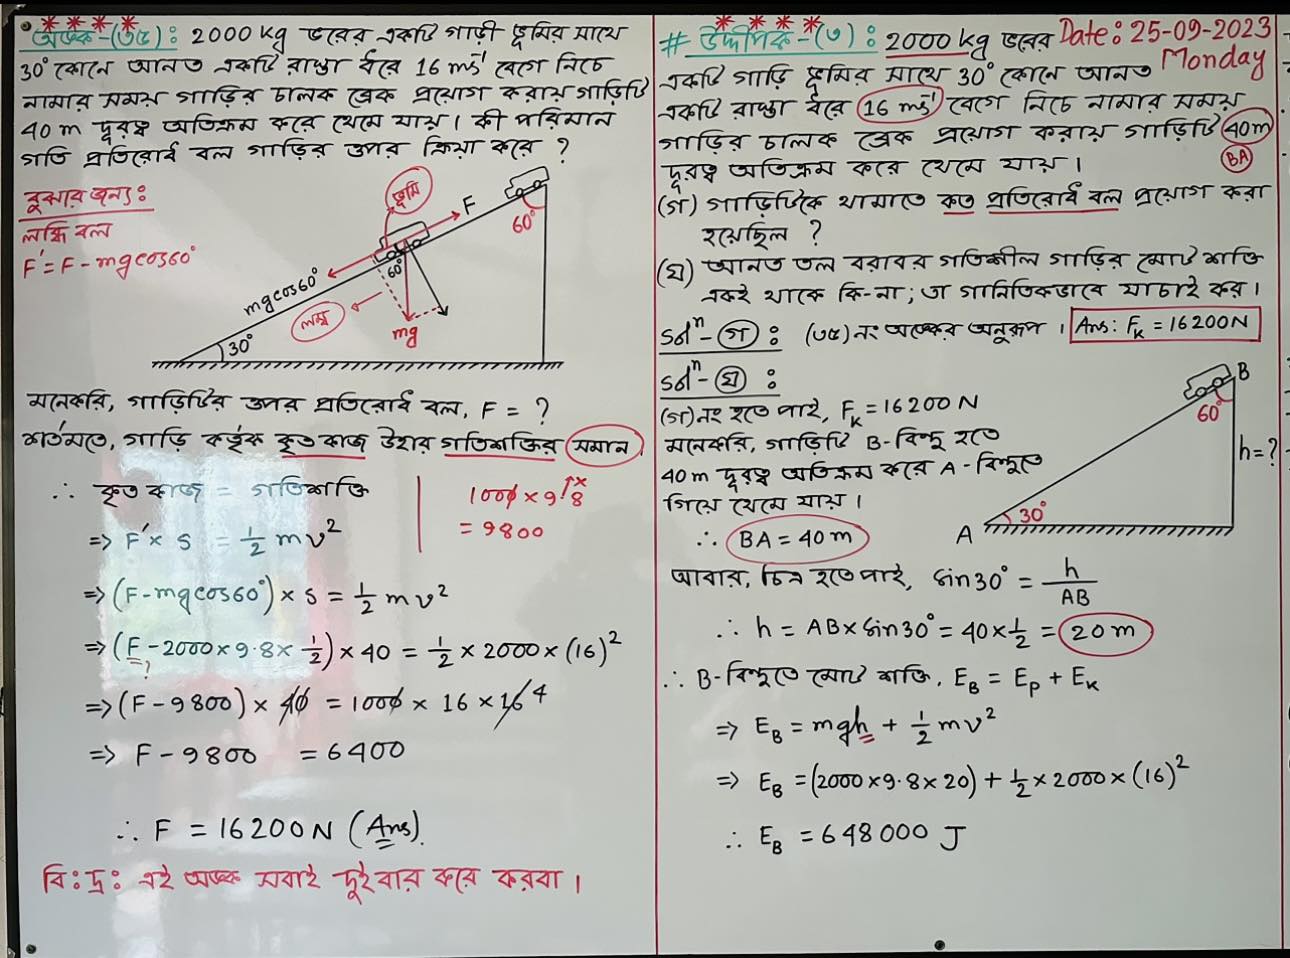 অংক-(৩৫): 2000 kg ভরের একটি গাড়ী ভূমির সাথে
30° কোনে আনত একটি রাস্তা ধরে 16 ms⁻¹ বেগে নিচে
নামার সময় গাড়ির চালক ব্রেক প্রয়োগ করায় গাড়িটি
40 m দূরত্ব অতিক্রম করে থেমে যায়। কী পরিমান
গতি প্রতিরোধ বল গাড়ির উপর ক্রিয়া করে ?
বুঝার জন্য:
লব্ধি বল
F' = F - mgcos60°
ভূমি
F
60°
mgcos60°
60°
লম্ব
mg
30°
মনেকরি, গাড়িটির উপর প্রতিরোধ বল, F = ?
শর্তমতে, গাড়ি কর্তৃক কৃত কাজ উহার গতিশক্তির সমান
∴ কৃত কাজ = গতিশক্তি
=> F' × s = ½ mv²
=> (F - mgcos60°) × s = ½ mv²
=> (F - 2000 × 9.8 × ½) × 40 = ½ × 2000 × (16)²
= ?
=> (F - 9800) × 40 = 1000 × 16 × 16 4
=> F - 9800 = 6400
∴ F = 16200 N (Ans).
1000 × 9.8
= 9800
বি:দ্র: এই অংক সবাই দুইবার করে করবা।
# উদ্দীপক-(৩): 2000 kg ভরের Date: 25-09-2023
একটি গাড়ি ভূমির সাথে 30° কোনে আনত Monday
একটি রাস্তা ধরে 16 ms⁻¹ বেগে নিচে নামার সময়
গাড়ির চালক ব্রেক প্রয়োগ করায় গাড়িটি 40m
দূরত্ব অতিক্রম করে থেমে যায়। BA
(গ) গাড়িটিকে থামাতে কত প্রতিরোধ বল প্রয়োগ করা
হয়েছিল ?
(ঘ) আনত তল বরাবর গতিশীল গাড়ির মোট শক্তি
একই থাকে কি-না; তা গানিতিকভাবে যাচাই কর।
Solⁿ-গ: (৩৫)নং অংকের অনুরূপ। Ans: Fₖ = 16200N
Solⁿ-ঘ:
(গ)নং হতে পাই, Fₖ = 16200 N
মনেকরি, গাড়িটি B-বিন্দু হতে
40m দূরত্ব অতিক্রম করে A-বিন্দুতে
গিয়ে থেমে যায়।
∴ BA = 40 m
B
60°
h = ?
30°
A
আবার, চিত্র হতে পাই, Sin30° = h/AB
∴ h = AB × Sin30° = 40 × ½ = 20 m
∴ B-বিন্দুতে মোট শক্তি, E_B = E_P + E_K
=> E_B = mgh + ½ mv²
=> E_B = (2000 × 9.8 × 20) + ½ × 2000 × (16)²
∴ E_B = 648000 J